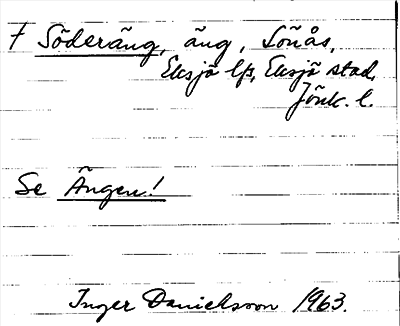 † Söderäng, äng, Sönås,
Eksjö lfs, Eksjö stad,
Jönk. l.
Se Ängen!
Inger Danielsson 1963.